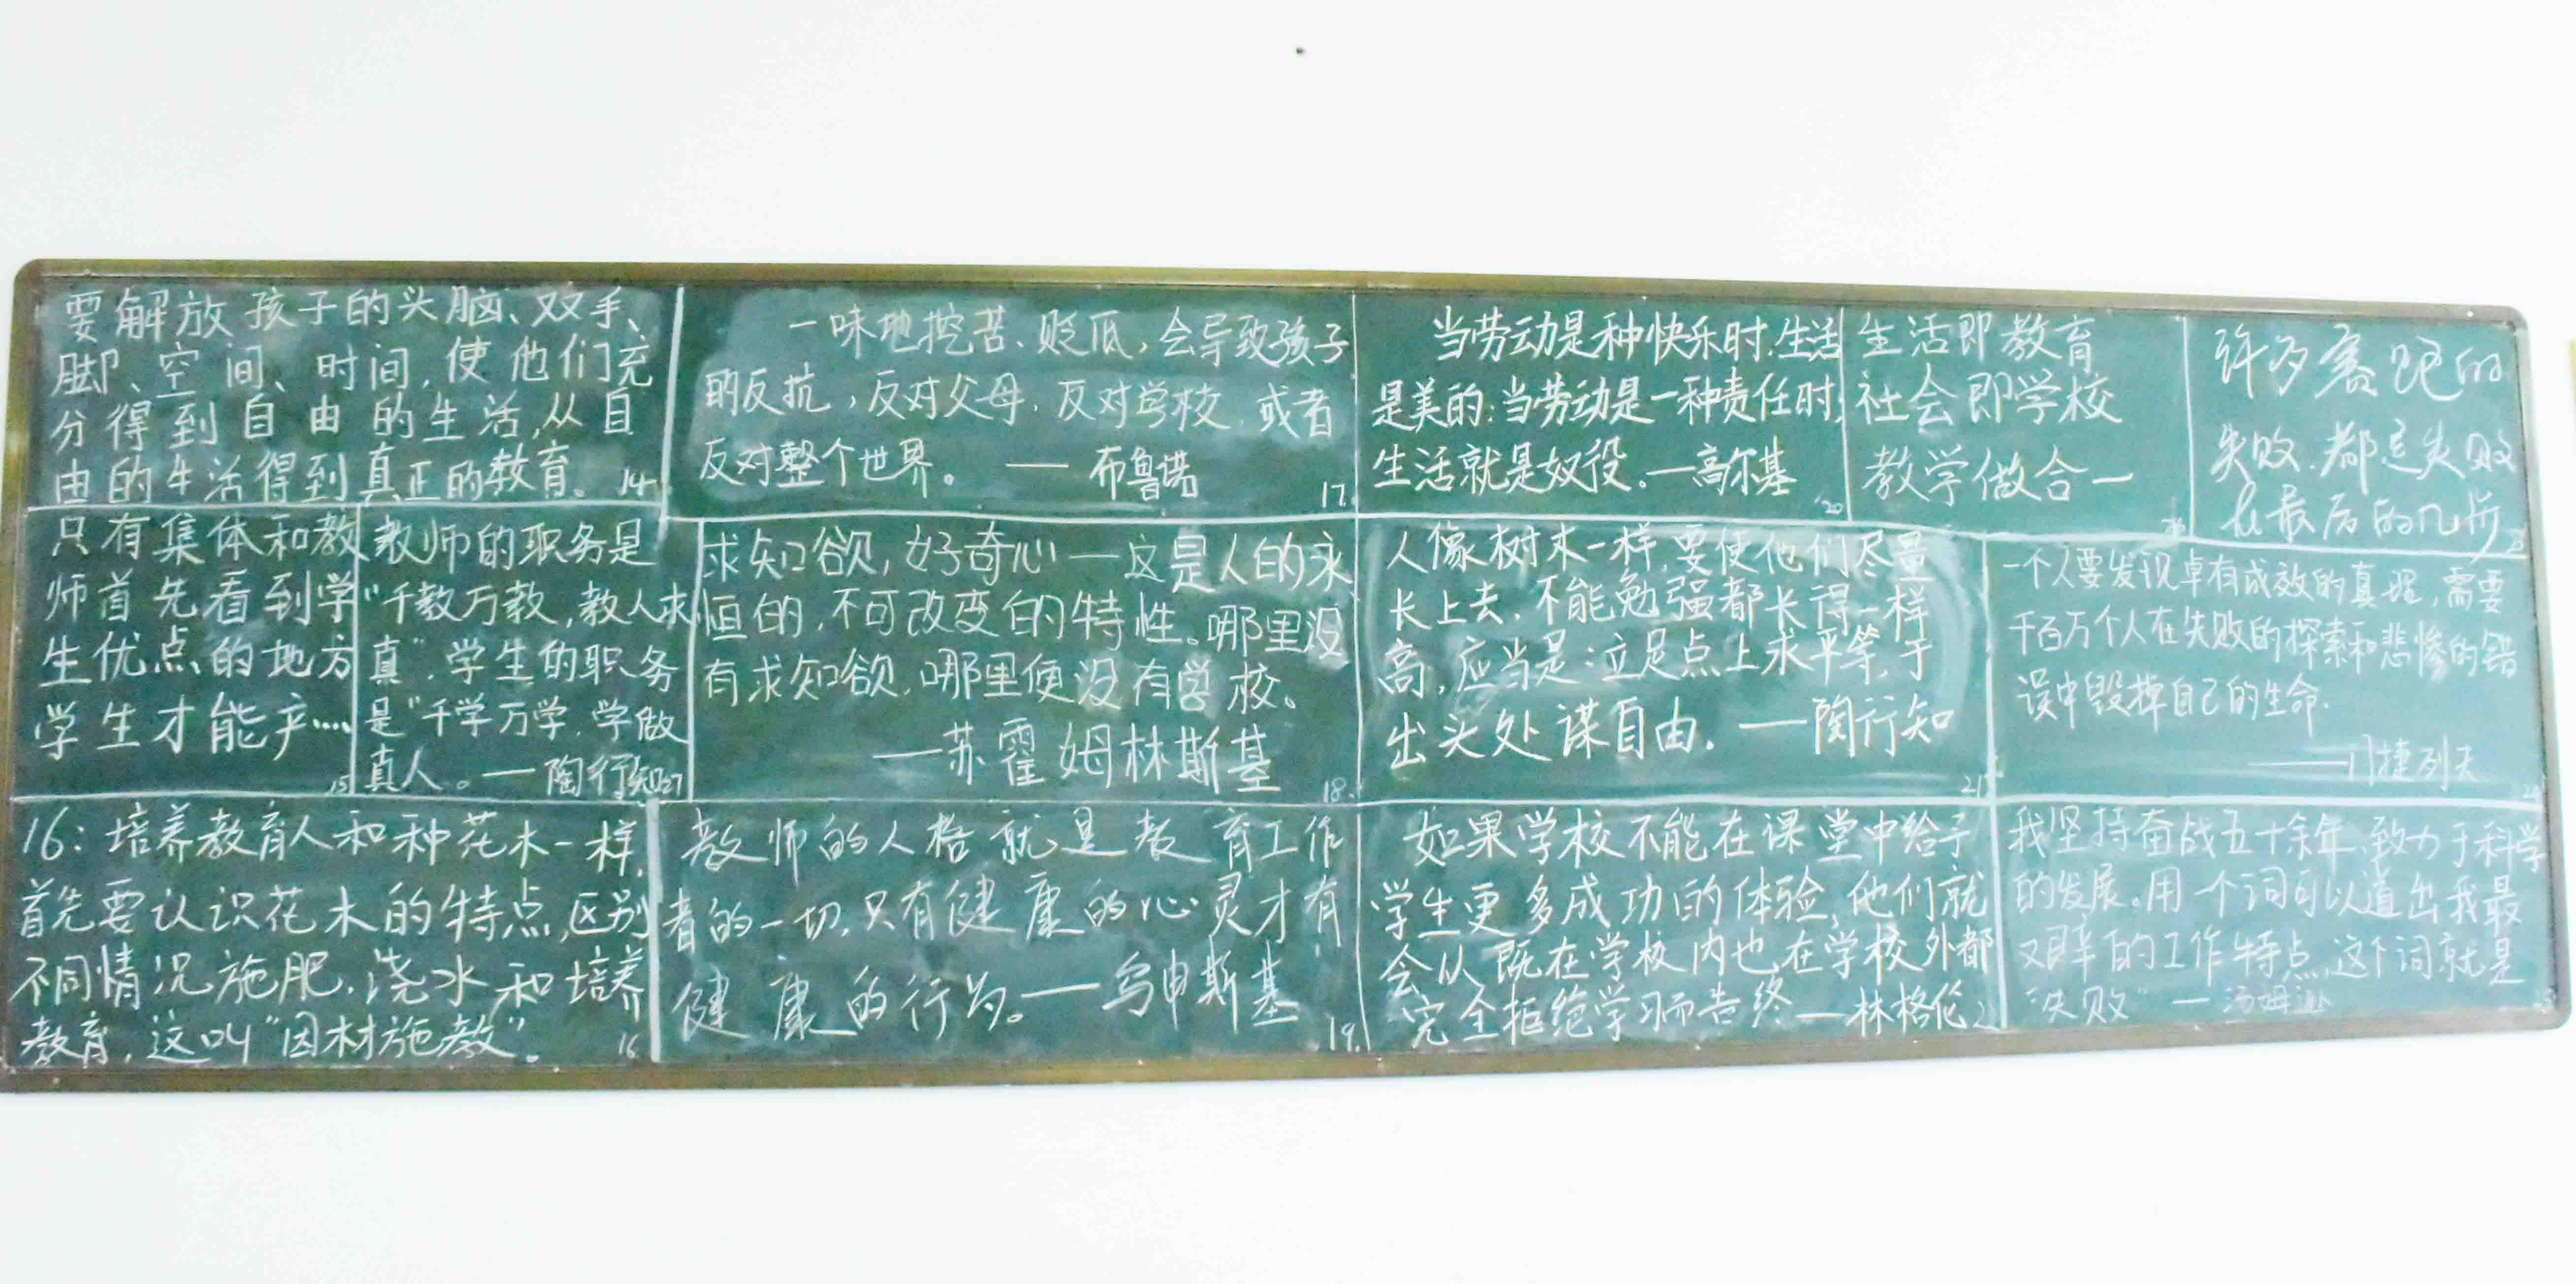 要解放孩子的头脑、双手、
脚、空间、时间,使他们充
分得到自由的生活,从自
由的生活得到真正的教育。 14
一味地挖苦、贬低,会导致孩子
的反抗,反对父母,反对学校,或者
反对整个世界。 —— 布鲁诺
17.
当劳动是种快乐时,生活
是美的;当劳动是一种责任时,
生活就是奴役。—高尔基
20
生活即教育
社会即学校
教学做合一
许多赛跑的
失败,都是失败
在最后的几步
只有集体和教
师首先看到学
生优点的地方
学生才能产....
15
教师的职务是
“千教万教,教人求
真”,学生的职务
是“千学万学,学做
真人。—陶行知27
求知欲,好奇心—这是人的永
恒的,不可改变的特性。哪里没
有求知欲,哪里便没有学校。
—苏霍姆林斯基
18.
人像树木一样,要使他们尽量
长上去,不能勉强都长得一样
高,应当是:立足点上求平等,于
出头处谋自由。—陶行知
21
一个人要发现卓有成效的真理,需要
千百万个人在失败的探索和悲惨的错
误中毁掉自己的生命.
——门捷列夫
16:培养教育人和种花木一样,
首先要认识花木的特点,区别
不同情况施肥,浇水和培养
教育,这叫“因材施教”。
16
教师的人格就是教育工作
者的一切,只有健康的心灵才有
健康的行为。—乌申斯基
19.
如果学校不能在课堂中给予
学生更多成功的体验,他们就
会从既在学校内也在学校外都
完全拒绝学习而告终—林格伦
我坚持奋战五十余年,致力于科学
的发展。用一个词可以道出我最
艰辛的工作特点,这个词就是
“失败”—汤姆逊